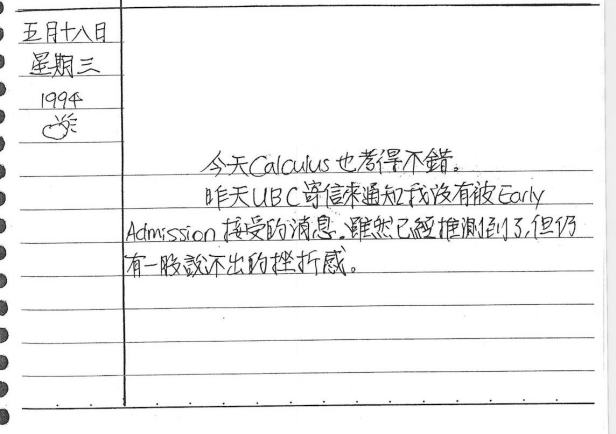 五月十八日
星期三
1994
今天Calculus也考得不錯。
昨天UBC寄信來通知我沒有被Early
Admission接受的消息。雖然已經推測到了,但仍
有一股說不出的挫折感。